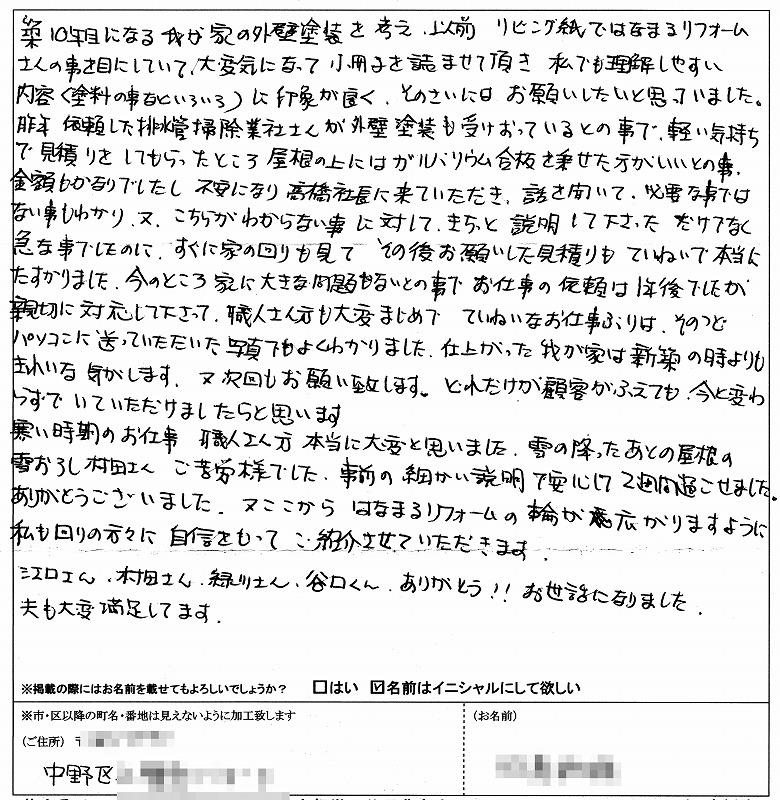 築10年目になる我が家の外壁塗装を考え、以前 リビング紙ではなまるリフォーム
さんの事を目にしていて、大変気になって小冊子を読ませて頂き 私でも理解しやすい
内容(塗料の事などいろいろ)に印象が良く、そのさいには お願いしたいと思っていました。
昨年 依頼した排水管掃除業社さんが外壁塗装も受けおっているとの事で、軽い気持ち
で見積りをしてもらったところ 屋根の上にはガルバリウム合板を乗せた方がいいとの事、
金額もかなりでしたし 不安になり 高橋社長に来ていただき、話を聞いて、必要な事では
ない事もわかり、又、こちらがわからない事に対して、きちっと 説明して下さった だけでなく
急な事でしたのに、すぐに家の回りも見て その後お願いした見積りも ていねいで本当に
たすかりました、今のところ 家に大きな問題もないとの事で お仕事の依頼は1年後でしたが
親切に対応して下さって、職人さん方も大変まじめで ていねいなお仕事ぶりは、そのつど
パソコンに送っていただいた写真でもよくわかりました、仕上がった我が家は新築の時よりも
きれいな気がします、又次回もお願い致します。どれだけか顧客がふえても、今と変わ
らずで いていただけましたらと思います
寒い時期のお仕事 職人さん方 本当に大変と思いました、雪の降ったあとの屋根の
雪おろし村田さん ご苦労様でした、事前の細かい説明で安心して 2週間過ごせました。
ありがとうございました、又ここから はなまるリフォームの輪が広がりますように
私も回りの方々に 自信をもって ご紹介させていただきます、
江口さん、村田さん、緑川さん、谷口くん、ありがとう!! お世話になりました、
夫も大変満足してます、
※掲載の際にはお名前を載せてもよろしいでしょうか? □はい ☑名前はイニシャルにして欲しい
※市・区以降の町名・番地は見えないように加工致します
(お名前)
(ご住所) 〒
中野区